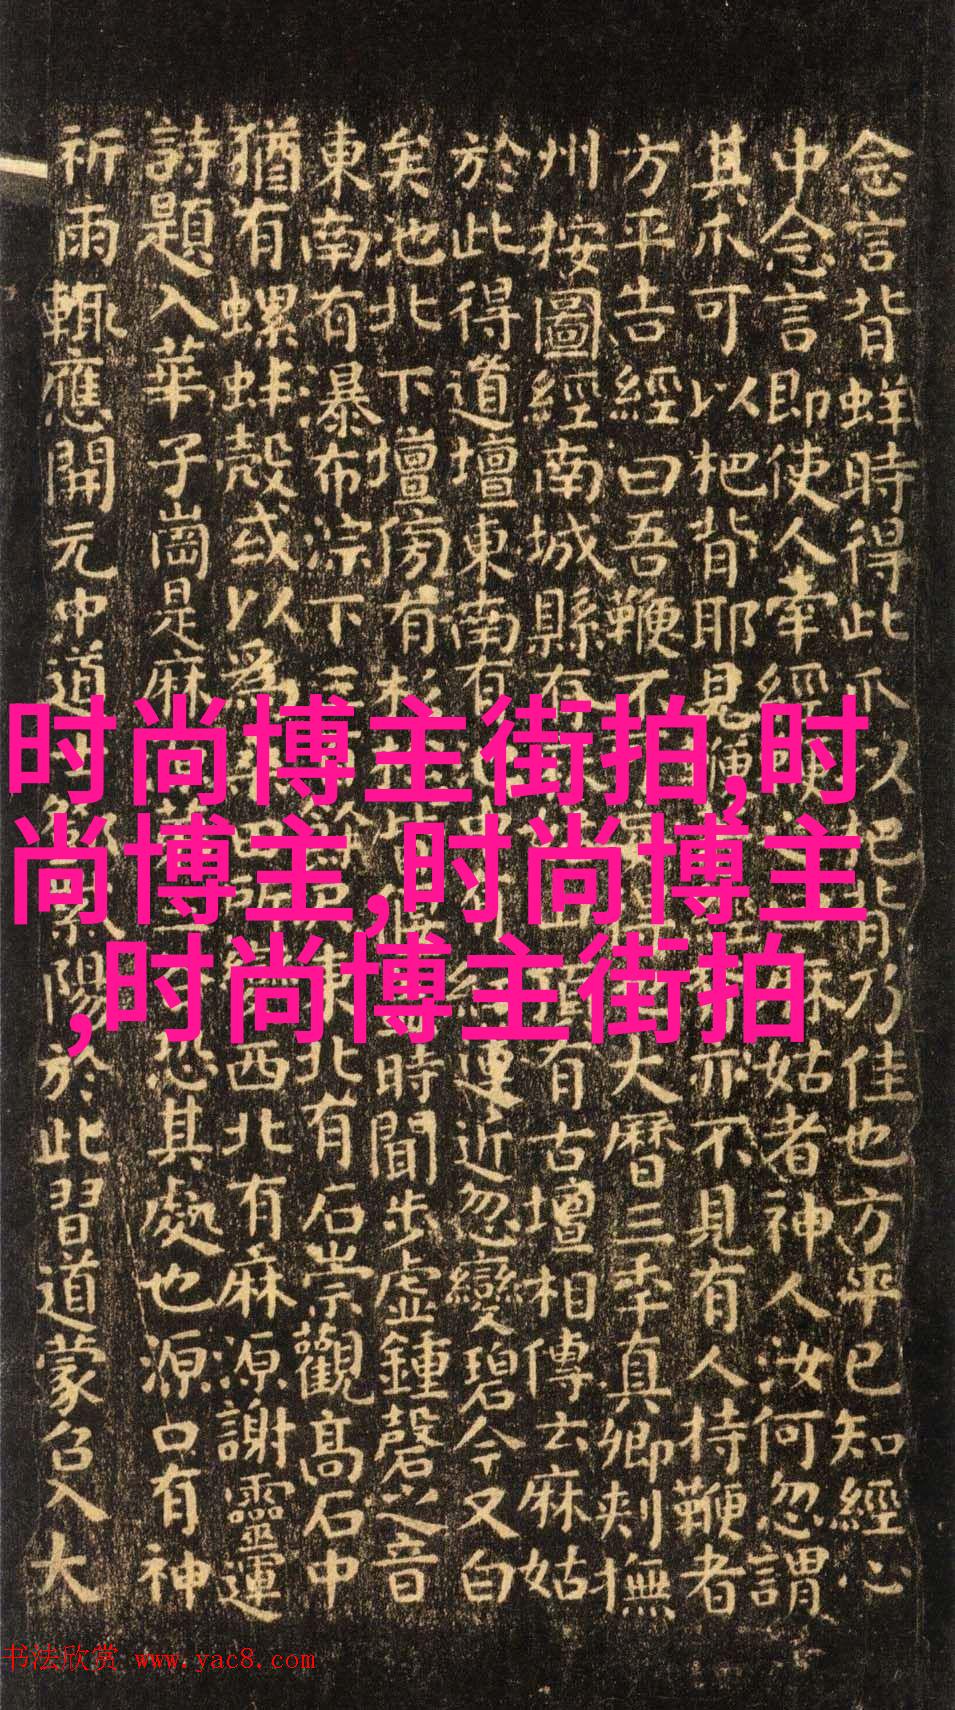 念言背蛘時得此爪以把背乃佳也方平已知經心
中念言即使人牽經鞭姑者神人汝何忽謂
其爪可以杷背耶見鞭亦不見有人持鞭者
方平告經曰吾鞭不大曆三年真卿刺撫
州按圖經南城縣有頂有古壇相傳云麻姑
於此得道壇東南有紅蓮近忽變碧今又白
矣池北下壇傍有杉時聞步虛鍾磬之音
東南有瀑布淙下三東北有石崇觀高石中
猶有螺蚌殼或以為西北有麻源謝靈運
詩題入華子崗是麻恐其處也源口有神
祈雨輒應開元中道陽於此習道蒙召入大
时尚博主街拍,时
尚博主,时尚博主
,时尚博主街拍
书法欣赏 www.yac8.com